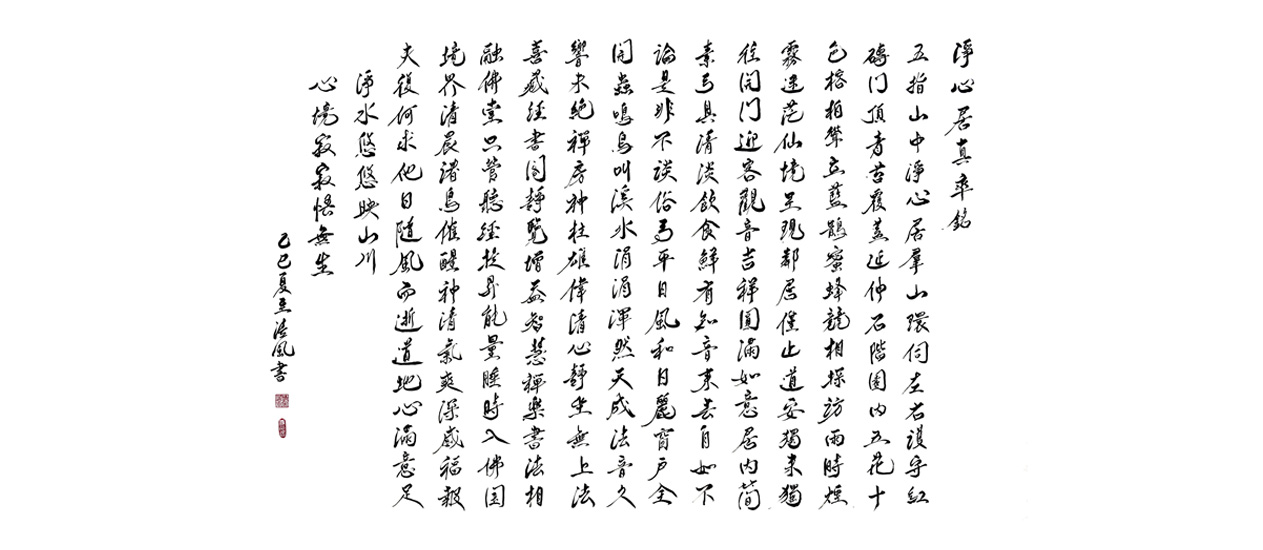 淨心居真率銘
五指山中淨心居羣山環伺左右護守紅
磚門頂青苔覆蓋延伸石階園內五花十
色榕柏聳立藍鵲蜜蜂競相探訪雨時煙
霧迷茫仙境呈現鄰居僅止道安獨來獨
往開門迎客觀音吉祥圓滿如意居內簡
素弓具清淡飲食鮮有知音來去自如不
論是非不談俗為平日風和日麗窗戶全
開蟲鳴鳥叫溪水涓涓渾然天成法音久
響未絕禪房神柱雄偉清心靜坐無上法
喜藏經書閣靜覽增益智慧禪樂書法相
融佛堂只管聽經提昇能量睡時入佛国
境界清晨諸鳥催醒神清氣爽深感福報
夫復何求他日隨風而逝道地心滿意足
淨水悠悠映山川
心境寂寂悟無生
乙巳夏至清風書